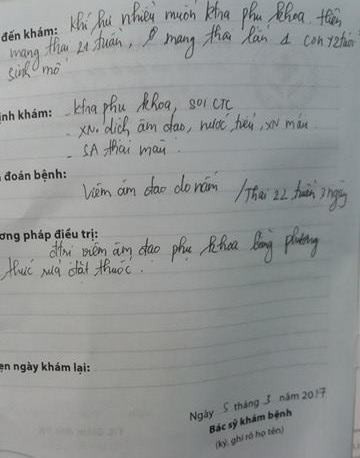 đến khám: Khí hư nhiều muốn ktra phụ khoa, hiện
mang thai 21 tuần, mang thai lần 1 con 12 tuổi
sinh mổ
ịnh khám: - ktra phụ khoa, soi CTC
- XN. dịch âm đạo, nước tiểu, XN máu
- SA thai màu.
đoán bệnh:
Viêm âm đạo do nấm /Thai 22 tuần 2 ngày
ơng pháp điều trị:
đtrị viêm âm đạo phụ khoa bằng phương
thức rửa đặt thuốc.
ẹn ngày khám lại:
Ngày 5 tháng 3 năm 2017
Bác sỹ khám bệnh
(ký, ghi rõ họ tên)